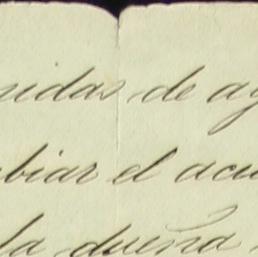 nidas de ag
mbiar el acu
la dueña